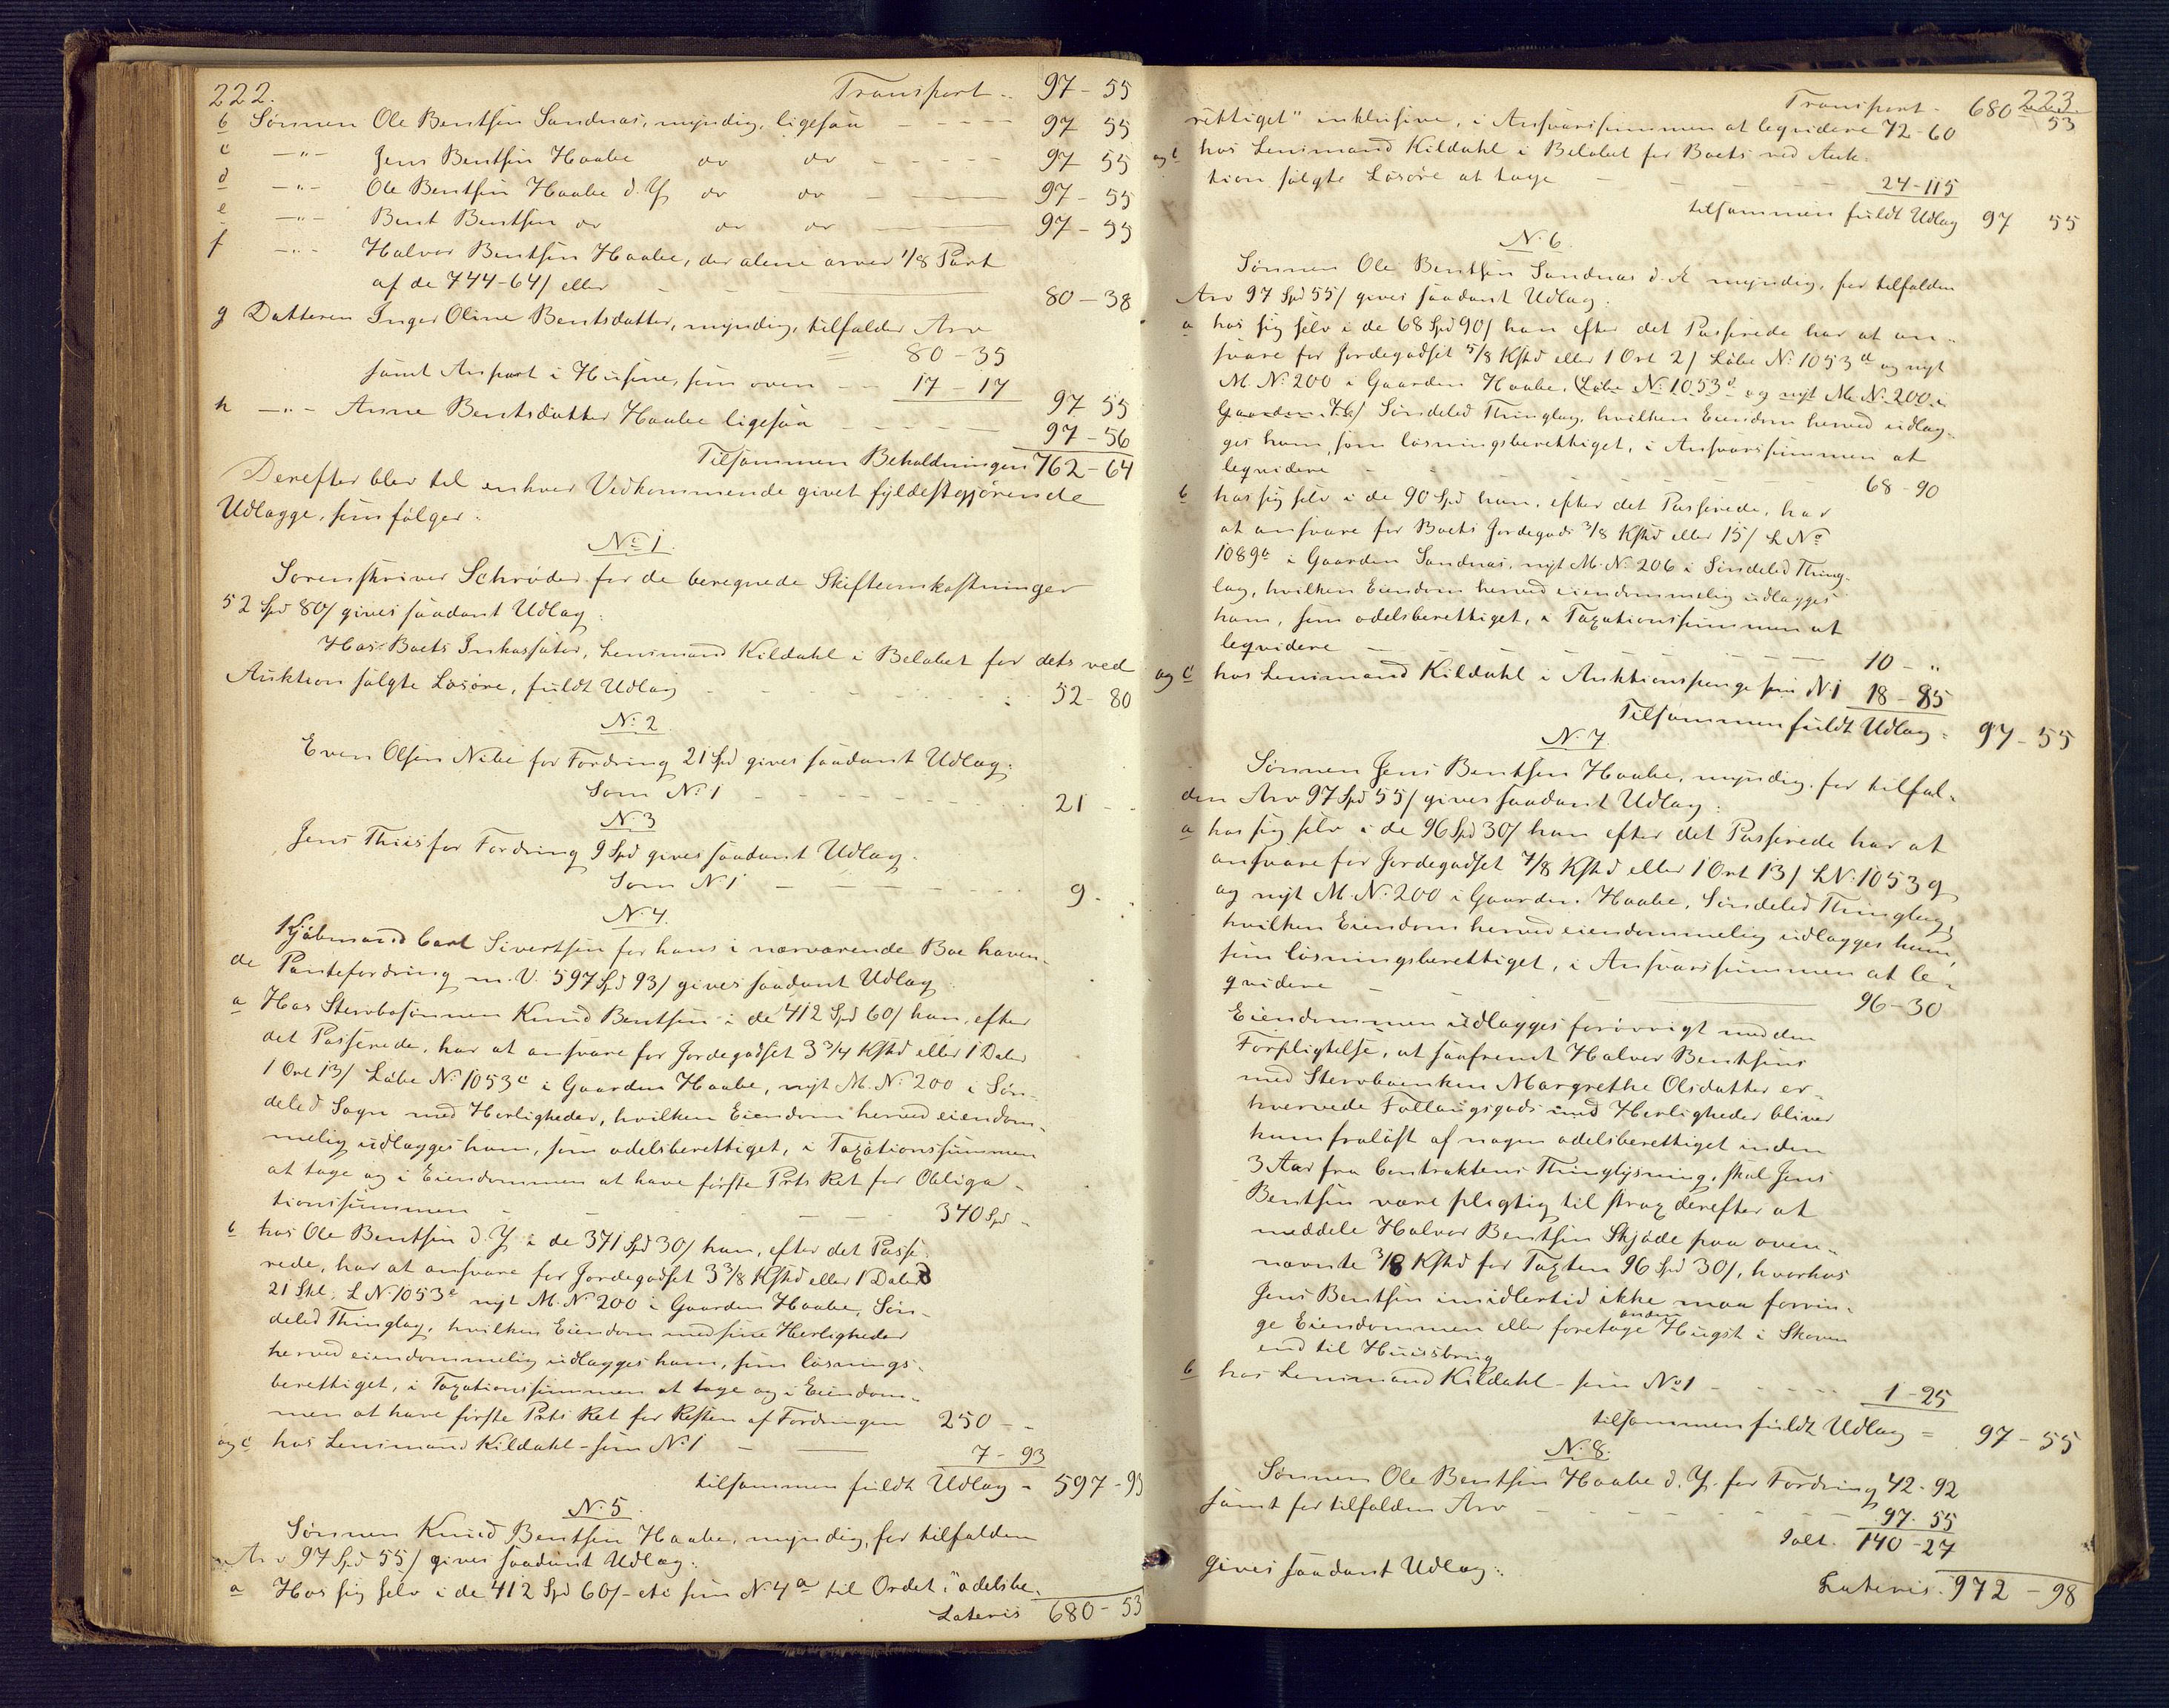 222.
Transport .. 97 - 55
b Sønnen Ole Bentsen Sandnæs, myndig, ligesaa - - - - - 97 55
c -"- Jens Bentsen Haabe do do - - - - - 97 55
d -"- Ole Bentsen Haabe d. Y. do do - 97 - 55
e -"- Bent Bentsen do do do 97 - 55
f -"- Halvor Bentsen Haabe, der alene arver 1/8 Part
af de 744-64/ eller - - 80 - 38
g Datteren Inger Oline Bentsdatter, myndig, tilfalder Arv
= 80 - 35
samt Anpart i Husene, som oven - - 17 - 17
97 55
h -"- Anne Bentsdatter Haabe ligesaa - - - - - 97 - 56
Tilsammen Beholdningen 762 - 64
Derefter blev til enhver Vedkommende givet fyldestgjørende
Udlægge, som følger:
No 1.
Sorenskriver Schrøder for de beregnede Skifteomkostninger
52 Spd 80/ gives saadant Udlæg:
Hos Boets Inkassator, Lensmand Kildahl i Beløbet for dets ved
Auktion solgte Løsøre, fuldt Udlæg - - - - : 52 - 80
No. 2
Even Olsen Nibe for Fordring 21 Spd gives saadant Udlæg:
Som No. 1 - - - - - - - - 21 - -
No. 3
Jens Thiis for Fordring 9 Spd gives saadant Udlæg.
Som No. 1 - - - - - - 9 -
N. 4.
Kjøbmand Carl Sivertsen for hans i nærværende Boe haven-
de Pantefordring m. V. 597 Spd 93/ gives saadant Udlæg:
a Hos Stervbosønnen Knud Bentsen i de 412 Spd 60/ han, efter
det Passerede, har at ansvare for Jordegodset 3 3/4 Kfhd eller 1 Daler
1 Ort 13/ Løbe No. 1053c i Gaarden Haabe, nyt M. No. 200 i Søn-
deled Sogn med Herligheder, hvilken Eiendom herved eiendom-
melig udlægges ham, som odelsberettiget, i Taxationssummen
at tage og i Eiendommen at have første Prts Ret for Obliga-
tionssummen - - - 340 Spd -
b hos Ole Bentsen d. Y. i de 371 Spd 30/ han, efter det Passe-
rede, har at ansvare for Jordegodset 3 3/8 Kfhd eller 1 Daler
21 Skl. L No 1053e nyt M. No 200 i Gaarden Haabe, Søn-
deled Thinglag, hvilken Eiendom med sine Herligheder
herved eiendommelig udlægges ham, som løsnings-
berettiget, i Taxationssummen at tage og i Eiendom-
men at have første Prts Ret for Resten af Fordringen 250 - -
og c hos Lensmand Kildahl - som No. 1 - 7 - 93
tilsammen fuldt Udlæg - 597 - 93
No. 5
Sønnen Knud Bentsen Haabe, myndig, for tilfalden
Arv 97 Spd 55/ gives saadant Udlæg:
a Hos sig selv i de 412 Spd 60/ - etc som N. 4a til Ordet: "odelsbe-
Lateris 680 - 53
223
Transport - 680 - 53
rettiget" inklusive, i Ansvarssummen at leqvidere 72 - 60
og b hos Lensmand Kildahl i Beløbet for Boets ved Auk-
tion solgte Løsøre at tage - - - - 24 - 115
tilsammen fuldt Udlæg 97 55
N. 6.
Sønnen Ole Bentsen Sandnæs d. Æ myndig, for tilfalden
Arv 97 Spd 55/ gives saadant Udlæg:
a hos sig selv i de 68 Spd 90/ han efter det Passerede har at an-
svare for Jordegodset 5/8 Kfhd eller 1 Ort 2/ Løbe No. 1053d og nyt
M. No. 200 i Gaarden Haabe, (Løbe No. 1053d og nyt M. No. 200 i
Gaarden H.) Søndeled Thinglag, hvilken Eiendom herved udlæg-
ges ham, som løsningsberettiget, i Ansvarssummen at
leqvidere - - 68 - 90
b hos sig selv i de 90 Spd han, efter det Passerede, har
at ansvare for Boets Jordegods 3/8 Kfhd eller 15/ L No
1089a i Gaarden Sandnæs, nyt M. No. 206 i Søndeled Thing-
lag, hvilken Eiendom herved eiendommelig udlægges
ham, som odelsberettiget, i Taxationssummen at
leqvidere - - - 10 - "
og c hos Lensmand Kildahl i Auktionspenge som N. 1 18 - 85
Tilsammen fuldt Udlæg = 97 - 55
N. 7
Sønnen Jens Bentsen Haabe, myndig, for tilfal-
den Arv 97 Spd 55/ gives saadant Udlæg:
a hos sig selv i de 96 Spd 30/ han efter det Passerede har at
ansvare for Jordegodset 7/8 Kfhd eller 1 Ort 13/ L No. 1053 g
og nyt M. No. 200 i Gaarden Haabe, Søndeled Thinglag,
hvilken Eiendom herved eiendommelig udlægges ham,
som løsningsberettiget, i Ansvarssummen at le-
qvidere - 96 - 30
Eiendommen udlægges forøvrigt med den
Forpligtelse, at saafremt Halvor Bentsens
med Stervboenken Margrethe Olsdatter er-
hvervede Føllaugsgods med Herligheder bliver
ham fraløst af nogen odelsberettiget inden
3 Aar fra Contraktens Thinglysning, skal Jens
Bentsen være pligtig til strax derefter at
meddele Halvor Bentsen Skjøde paa oven-
nævnte 7/8 Kfhd for Taxten 96 Spd 30/, hvorhos
Jens Bentsen imidlertid ikke maa forrin-
ge Eiendommen eller foretage anden Hugst i Skoven
end til Huusbrug
b hos Lensmand Kildahl - som No. 1 - - - - - 1 - 25
tilsammen fuldt Udlæg = 97 - 55
N. 8.
Sønnen Ole Bentsen Haabe d. Y. for Fordring 42 - 92
samt for tilfalden Arv - - - - - - 97 - 55
Ialt. 140 - 27
gives saadant Udlæg:
Lateris . 972 - 98